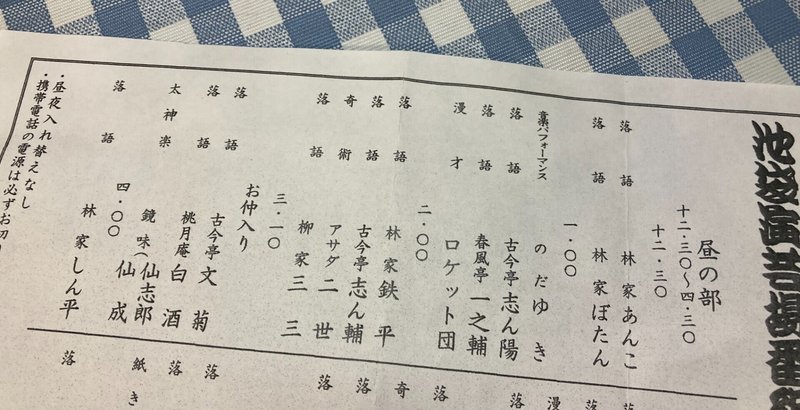 池袋演芸場番組
昼の部
十二・三〇〜四・三〇
十二・三〇
落語 林家あんこ
落語 林家ぼたん
一・〇〇
音楽パフォーマンス のだゆき
落語 古今亭志ん陽
落語 春風亭一之輔
漫才 ロケット団
二・〇〇
落語 林家鉄平
落語 古今亭志ん輔
奇術 アサダ二世
落語 柳家三三
三・一〇
お仲入り
落語 古今亭文菊
落語 桃月庵白酒
太神楽 鏡味(仙志郎 仙成
四・〇〇
落語 林家しん平
・昼夜入れ替えなし
・携帯電話の電源は必ずお切り
落
漫
落
落
奇
落
落
落
落
紙き
落